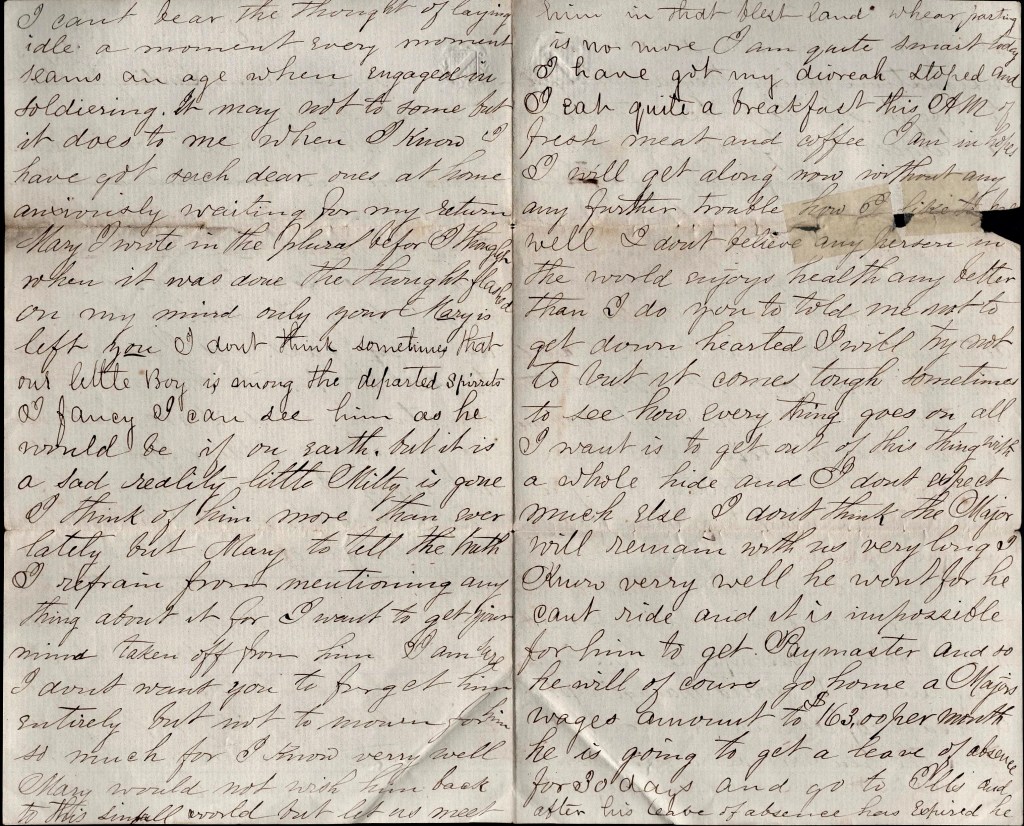 I cant bear the thought of laying
idle a moment every moment
seams an age when engaged in
soldiering. It may not to some but
it does to me when I Know I
have got such dear ones at home
anxiously waiting for my return
Mary I wrote in the plural befor I though
when it was done the thought flashed
on my mind only your Mary is
left you I dont think sometimes that
our little Boy is mong the departed Spirrits
I fancy I can see him as he
would be if on Earth. but it is
a sad reality little Milty is gone
I think of him more than ever
lately but Mary to tell the truth
I refrain from mentioning any
thing about it for I want to get your
mind taken off from him I am
I dont want you to forget him
entirely but not to mourn for him
so much for I Know verry well
Mary would not wish him back
to this sinfull world but let us meet
him in that blest land whear parting
is no more I am quite smart today
I have got my dioreah stoped and
I eat quite a breakfast this AM of
fresh meat and coffee I am in hopes
I will get along now without any
any further trouble how I like to be
well I dont believe any person in
the world enjoys health any better
than I do you to told me not to
get down hearted I will try not
to but it comes tough sometimes
to see how every thing goes on all
I want is to get out of this thing with
a whole hide and I dont expect
much else I dont think the Major
will remain with us very long I
Know verry well he wont for he
cant ride and it is impossible
for him to get Paymaster and so
he will of cours go home a Majors
wages amount to $163,00 per month
he is going to get a leave of absence
for 30 days and go to Ills and
after his leave of absence has expired he